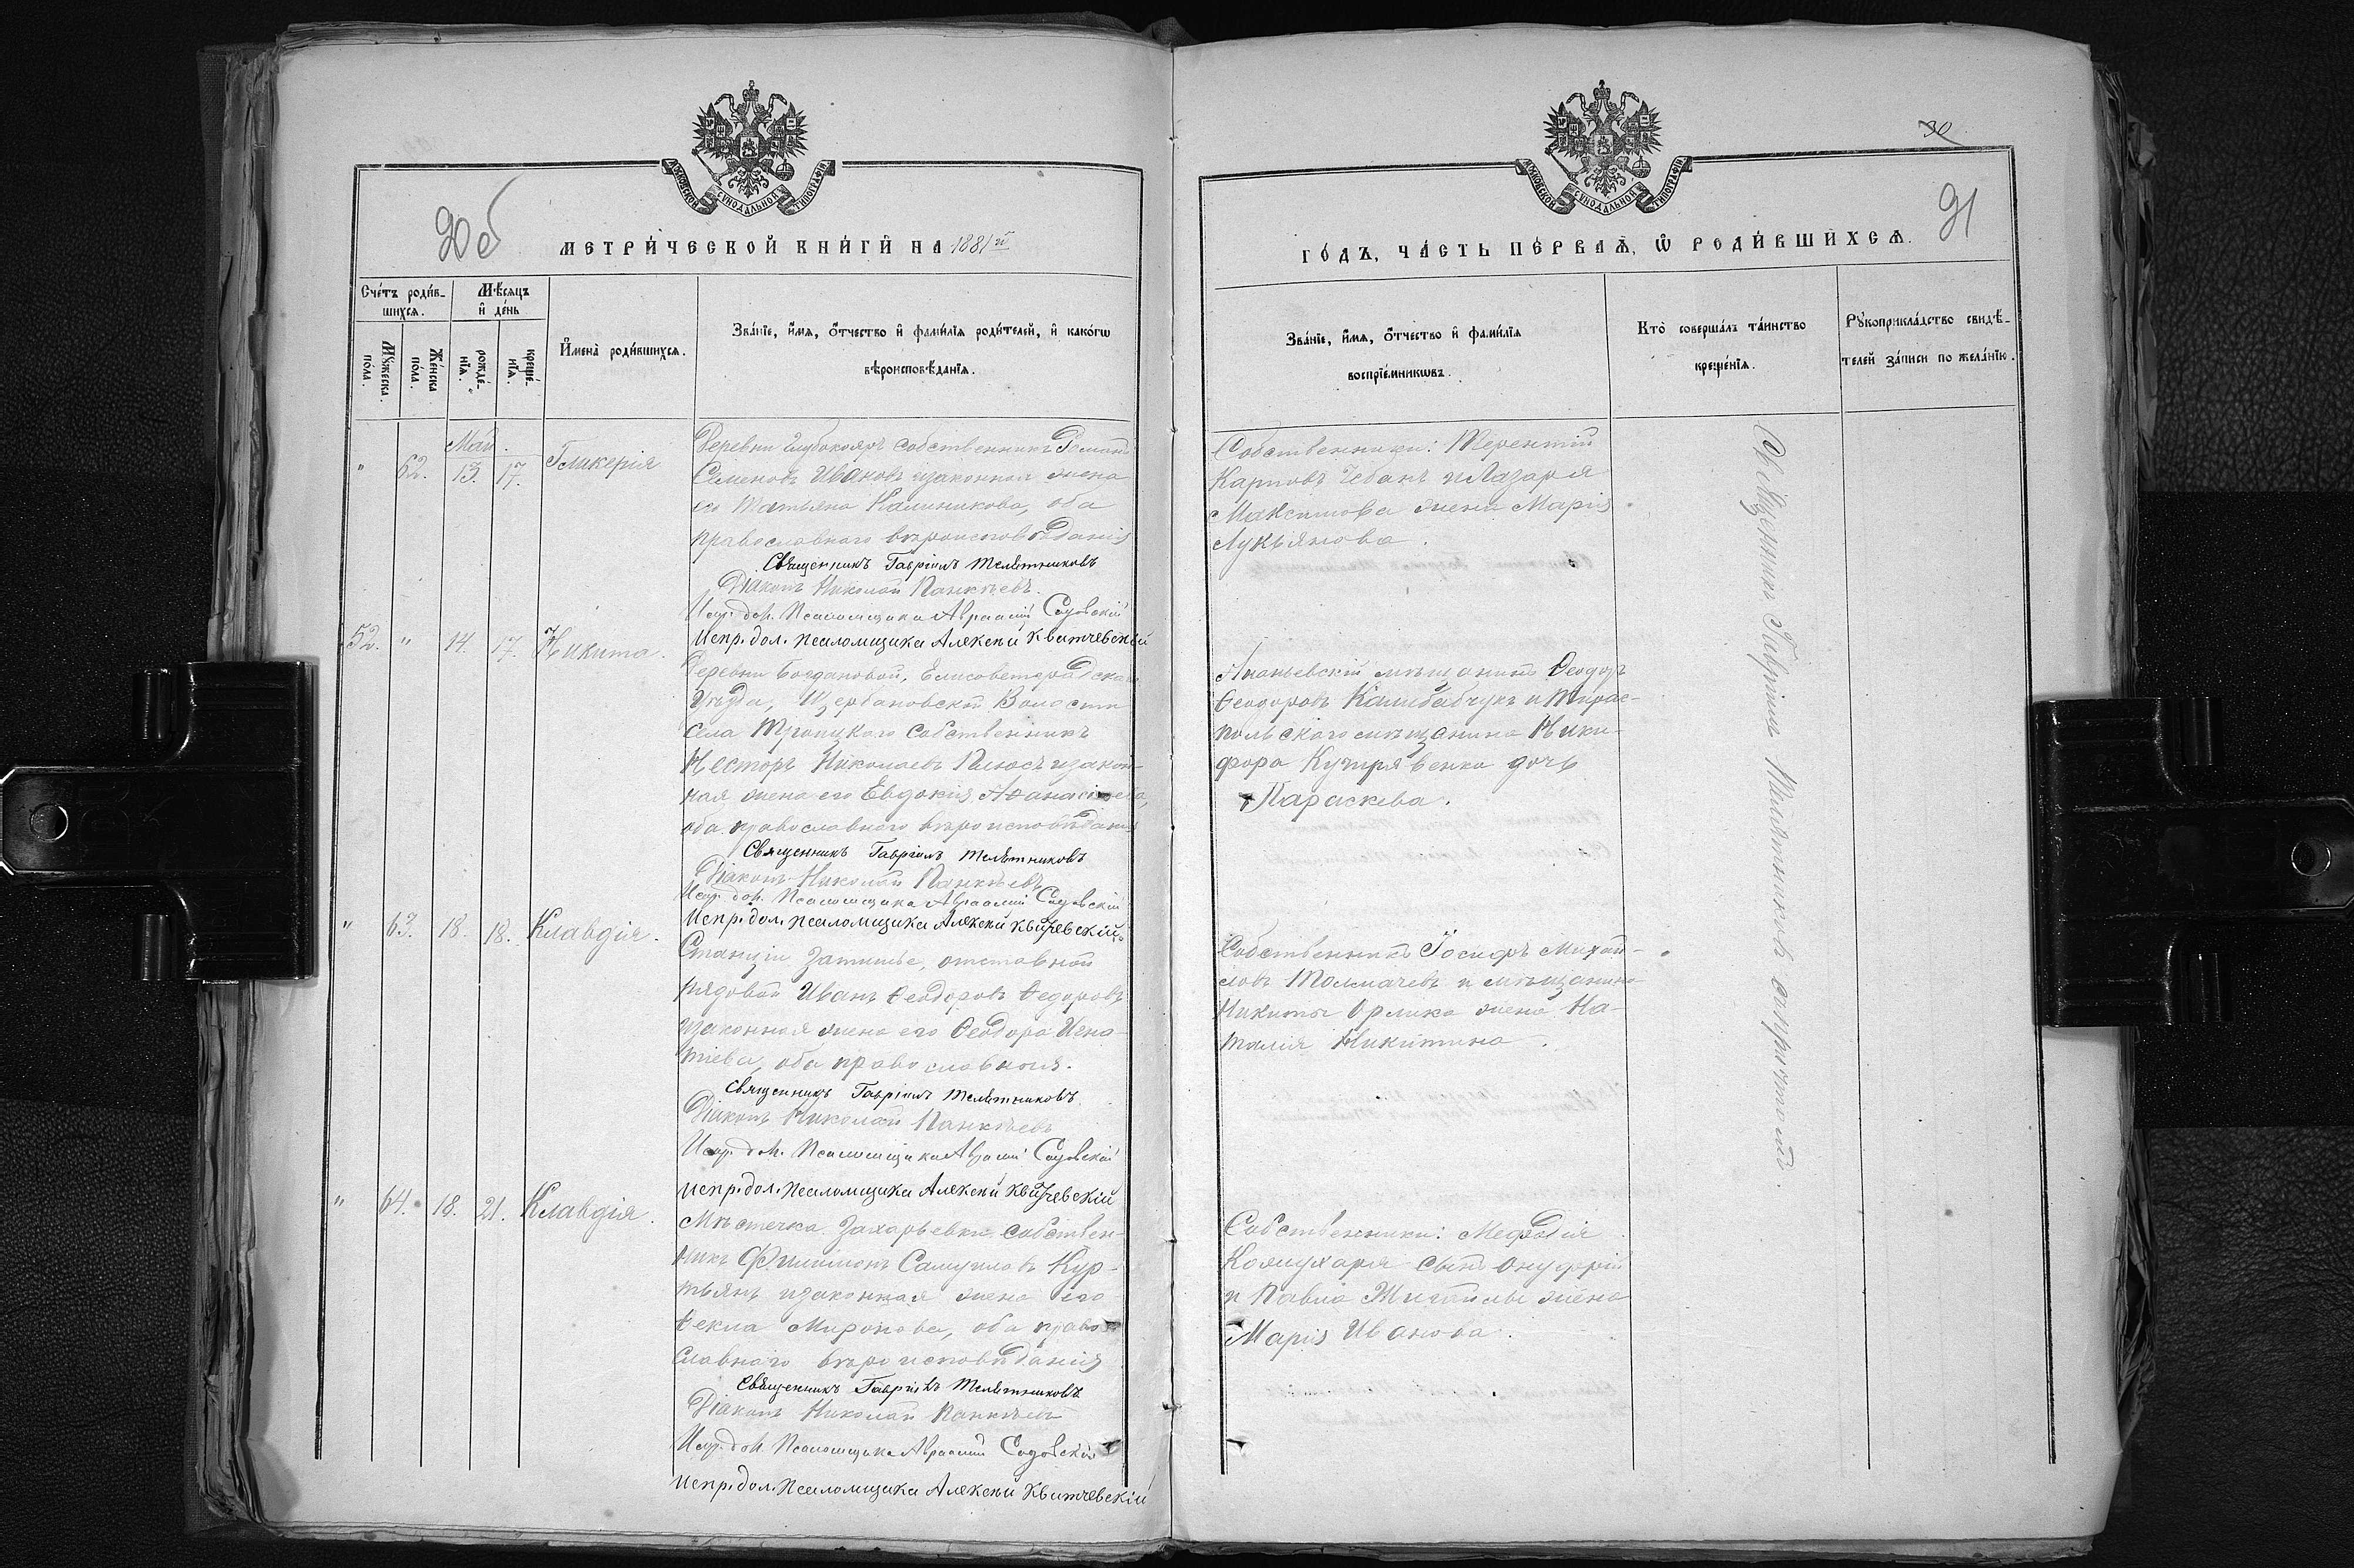 МОСКОВСКОЙ СѴНОДАЛЬНОЙ ТИПОГРАФІИ
90 об
МЕТРИ́ЧЕСКОЙ КНИ́ГИ НА 1881й
Сче́тъ роди́в-
шихсѧ.
Мѣ́сѧцъ
и де́нь
Мꙋ́жеска
по́ла.
Же́нска
по́ла.
рожде́-
нїѧ.
креще́-
нїѧ.
И҆мена̀ роди́вшихсѧ.
Зва́нїе, и҆́мѧ, ѻ҆́тчество и҆ фами́лїѧ роди́телей, и҆ како́гѡ
вѣроисповѣ́данїѧ.
Май.
" 62. 13. 17. Гликерія
Деревни Глубокояръ собственникъ Романъ
Семеновъ Ивановъ изаконная жена
его Татьяна Калиникова, оба
православнаго вѣроисповѣданія
Священникъ Гавріилъ Мелѣтниковъ
Діаконъ Николай Панкѣевъ.
Испр. дол. Псаломщика Авраамій Садовскій
Испр. дол. псаломщика Алексѣй Квитчевскій
52. " 14. 17. Никита.
Деревни Богдановой, Елисоветградска
Уѣзда, Щербановской Волости
села Троицкаго собственникъ
Несторъ Николаевъ изакон-
ная жена его Евдокія Аѳанасіева,
оба православнаго вѣроисповѣданія
Священникъ Гавріилъ Мелѣтниковъ
Діаконъ Николай Панкѣевъ
Испр. дол. Псаломщика Авраамій Садовскій
Испр. дол. псаломщика Алексѣй Квитчевскій
" 63. 18. 18. Клавдія.
Станціи Затишье, отставной
рядовой Иванъ Ѳеодоровъ Ѳедоровъ
изаконная жена его Ѳеодора Игна-
тіева, оба православныя.
Священникъ Гавріилъ Мелѣтниковъ
Діаконъ Николай Панкѣевъ
Испр. дол. Псаломщика Авраамій Садовскій
Испр. дол. псаломщика Алексѣй Квитчевскій
" 64. 18. 21. Клавдія.
Мѣстечка Захарьевки собствен-
никъ Филимонъ Самуиловъ Кур-
тьянъ изаконная жена его
Ѳекла Миронова, оба право-
славнаго вѣроисповѣданія
Священникъ Гавріилъ Мелѣтниковъ
Діаконъ Николай Панкѣевъ
Испр. дол. Псаломщика Авраамій Садовскій
Испр. дол. псаломщика Алексѣй Квитчевскій
МОСКОВСКОЙ СѴНОДАЛЬНОЙ ТИПОГРАФІИ
30
91
ГО́ДЪ, ЧА́СТЬ ПЕ́РВАѦ, Ѡ҆ РОДИ́ВШИХСѦ.
Зва́нїе, и҆́мѧ, ѻ҆́тчество и҆ фами́лїѧ
воспрїе́мникѡвъ.
Кто̀ соверша́лъ та́инство
креще́нїѧ.
Рꙋкоприкла́дство свидѣ́-
телей за́писи по жела́нїю.
Собственники: Терентій
Карповъ Чебанъ и Лазаря
Максимова жена Марія
Лукьянова.
Ананьевскій мѣщанинъ Ѳеодоръ
Ѳеодоровъ Калибабчукъ и Тирас-
польскаго мѣщанина Ники-
фора Кучерявенка дочь
Параскева.
Собственникъ Іосифъ Михай-
ловъ Толмачевъ и мѣщанина
Никиты Орлика жена На-
талія Никитина.
Собственники: Меѳодія
сынъ Онуфрій
и Павла жена
Марія Иванова.
Священникъ Гавріилъ Мелѣтниковъ